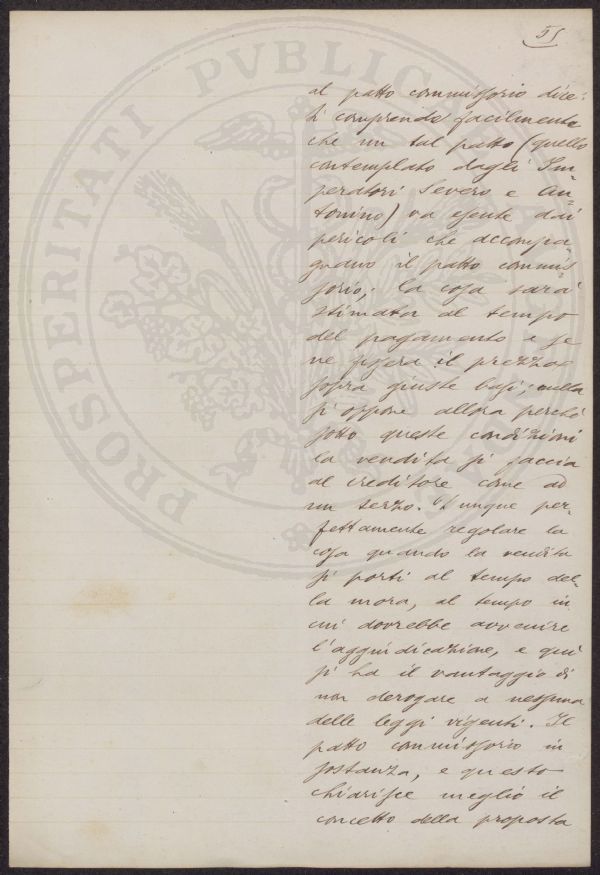 51
al patto commissorio dice:
Si comprende facilmente
che un tal patto (quello
contemplato dagli Im-
peratori Severo e An-
tonino) va esente dai
pericoli che accompa-
gnano il patto commis-
sorio; la cosa sarà
stimata al tempo
del pagamento e se
ne fisserà il prezzo
sopra giuste basi; nulla
si oppone allora perchè
sotto queste condizioni
la vendita si faccia
al creditore come ad
un terzo. È dunque per-
fettamente regolare la
cosa quando la vendita
si porti al tempo del-
la mora, al tempo in
cui dovrebbe avvenire
l'aggiudicazione, e qui
si ha il vantaggio di
non derogare a nessuna
delle leggi vigenti. Il
patto commissorio in
sostanza, e questo
chiarisce meglio il
concetto della proposta
PROSPERITATI PVBLICAE